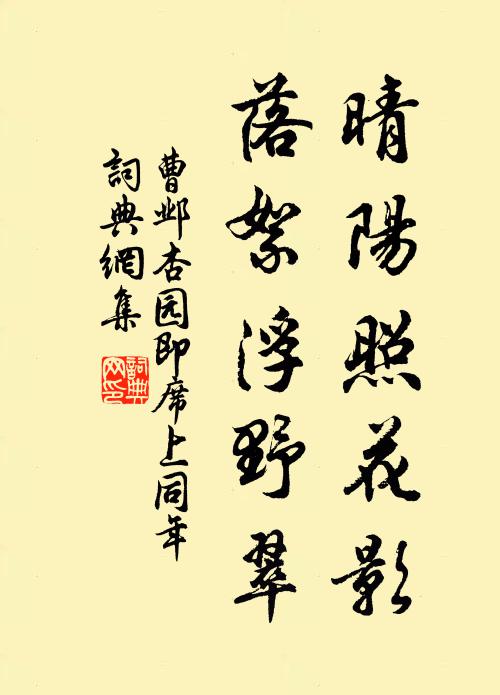 晴陽照花影
落絮浮野翠
曹邺杏园即席上同年
詞典網集
詞典網印